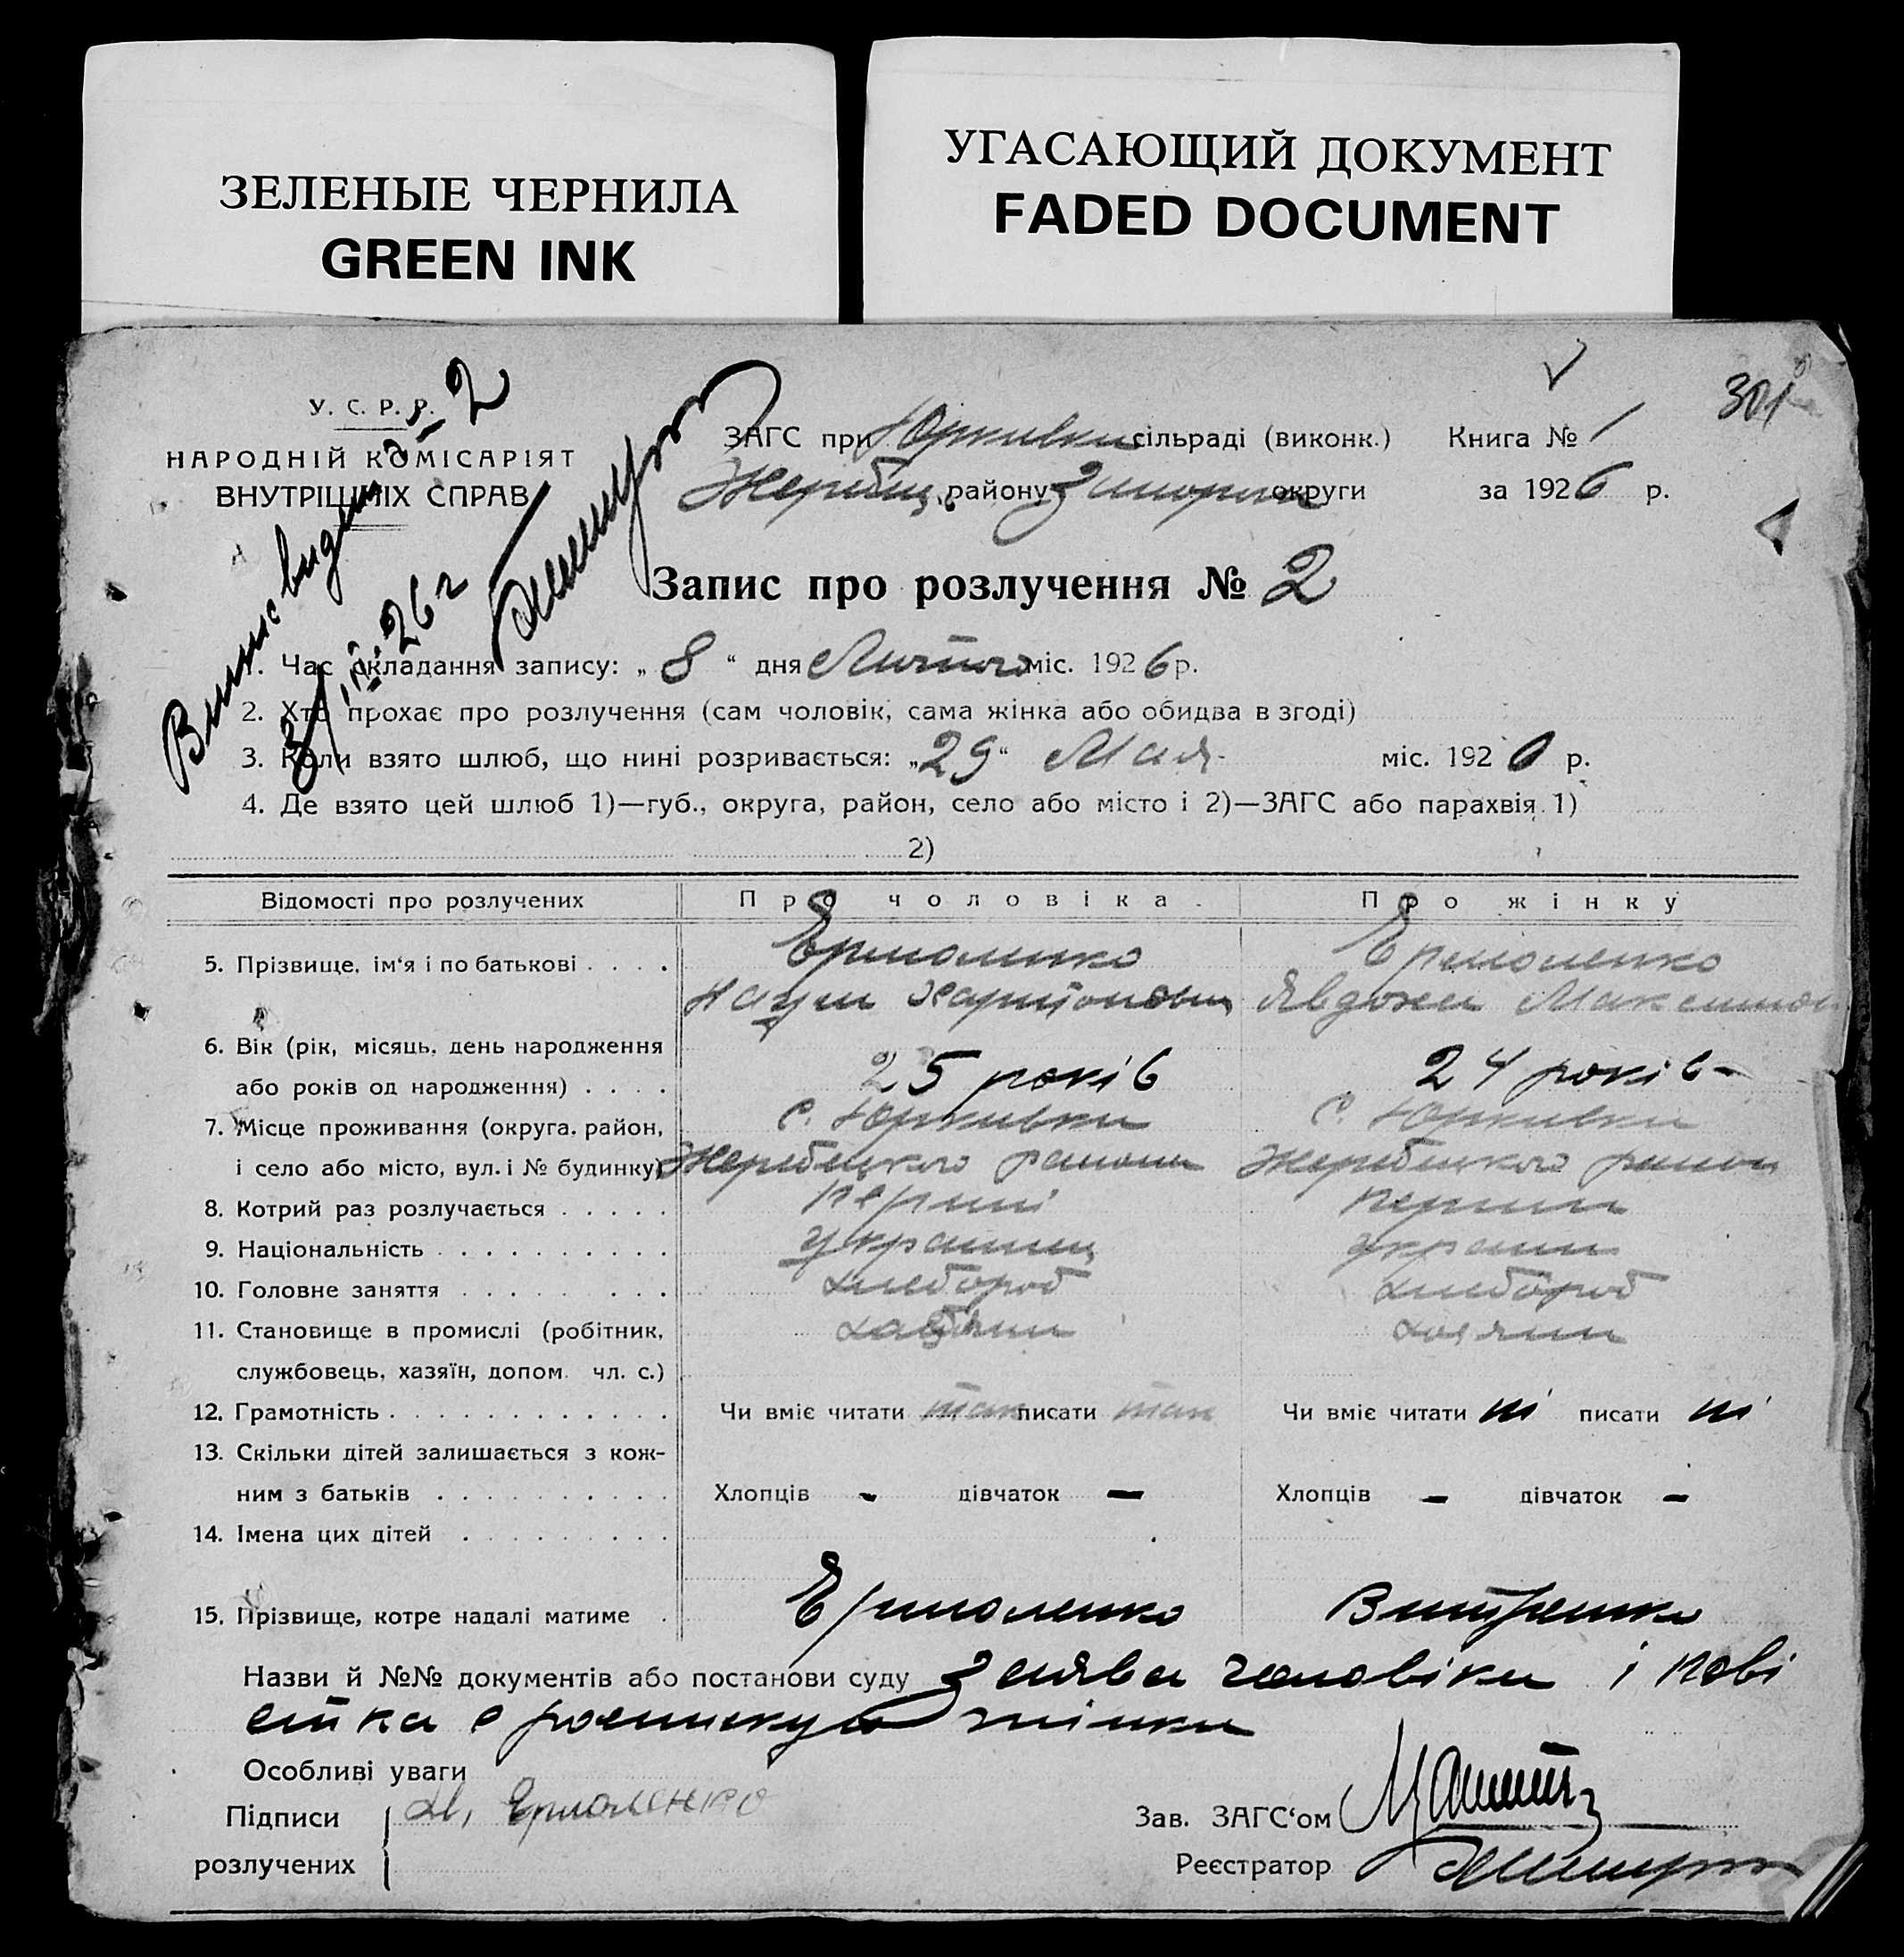 ЗЕЛЕНЫЕ ЧЕРНИЛА
GREEN INK
УГАСАЮЩИЙ ДОКУМЕНТ
FADED DOCUMENT
301
У. С. Р. Р.
НАРОДНІЙ КОМІСАРІЯТ
ВНУТРІШНІХ СПРАВ
№ 2
26 г
ЗАГС при Юркивки сільраді (виконк.) Книга № 1
Жеребец. району Запорож округи за 1926 р.
Запис про розлучення № 2
1. Час складання запису: „ 8 “ дня Лютого міс. 1926 р.
2. Хто прохає про розлучення (сам чоловік, сама жінка або обидва в згоді)
3. Коли взято шлюб, що нині розривається: „29“ Мая міс. 1920 р.
4. Де взято цей шлюб 1)—губ., округа, район, село або місто і 2)—ЗАГС або парахвія 1)
2)
Відомості про розлучених Про чоловіка. Про жінку
5. Прізвище, ім‘я і по батькові . . . . Ермоленко Ермоленко
Наум Харитонович Явдоха Максимов
6. Вік (рік, місяць, день народження
або років од народження) . . . . 25 років 24 років
7. Місце проживання (округа, район, с. Юркивки с. Юркивки
і село або місто, вул. і № будинку) Жеребецкого района Жеребецкого району
8. Котрий раз розлучається . . . . . перший перший
9. Національність . . . . . . . . . . украинец украин
10. Головне заняття . . . . . . . . хлебороб хлебороб
11. Становище в промислі (робітник,
службовець, хазяїн, допом. чл. с.)
12. Грамотність . . . . . . . . . . . . Чи вміє читати так писати так Чи вміє читати ні писати ні
13. Скільки дітей залишається з кож-
ним з батьків . . . . . . . . . . Хлопців – дівчаток – Хлопців – дівчаток –
14. Імена цих дітей . . . . . . . . .
15. Прізвище, котре надалі матиме . Ермоленко
Назви й №№ документів або постанови суду Заява чоловіка і пові
стка с роспискую жінки
Особливі уваги
Підписи Ермоленко Зав. ЗАГС‘ом
розлучених Реєстратор